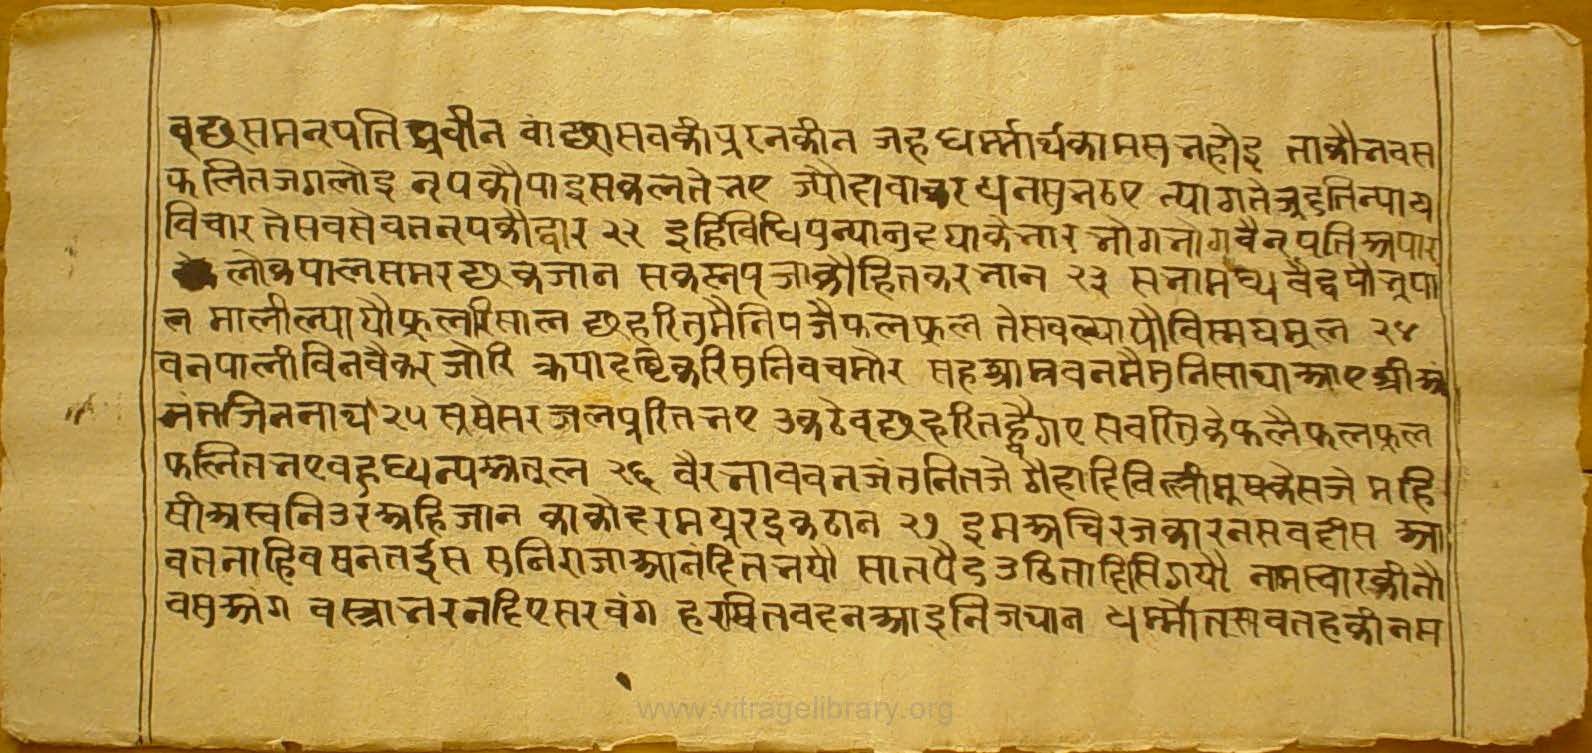 वृछसमनरपतिप्रवीन वांछासवकीपुरनकीन जहधर्म्मार्थकामससुनहोइ ताकौनवस
फलितजगलोइ नरपकौपाइसकलतेनए ज्यौदावाचर धनसुनठए त्यागतेजु
विचार तेसवसेवतनरपकौद्वार २२ इहिविधिपुन्यानुदयाकेनार नोगनोगवैनरपतिअपार
लोकपालसमरछकजान सकलप्रजाकौहितकरनान २३ सनामध्य
ल मालील्यायौफूलरिसाल छहरितुमैनिपजैफलफूल तेसवल्यायौविस्मयमूल २४
वनपालीविनवैकर जोरि क्रपादृष्टिकरिसुनिवचमोर सहआम्रवनमैमुनिसाथाआए श्रीअ
नंतजिननाथ २५ सूषेसर जलपूरितनए उकठेवृछहरितह्वैगए सवरितुकेफलैफलफूल
फलितनएवहुधान्यअतूल २६ वैरनावबनजंतुनितजे गैहादिविल्लीमूषकसजे महि
षीअस्वनिउरअहिजान काकोदरमयूरइकठान २७ इमअचिरजकारनसवदीस आ
वतनाहिवसनतईस सुनिराजाआनंदितनयौ सातपैंडउठितादिसिगयौ नमस्कारकीनौ
वसुअंग वस्त्रानरनदिएसरवंग हरषितवदनआइनिजथान धर्म्मोतसवतहकीनम
www.vitragelibrary.org